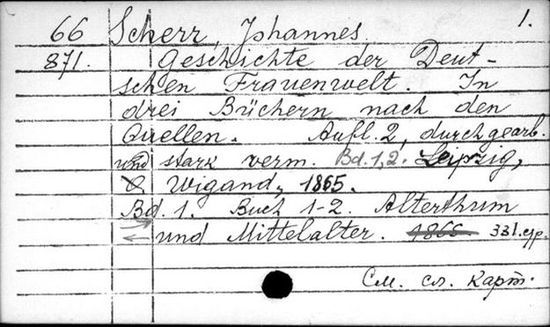 1.
66 Scherr, Johannes.
871. Geschichte der Deut-
schen Frauenwelt. In
drei Büchern nach den
Quellen. Aufl. 2, durchgearb.
und stark verm. Bd. 1, 2. Leipzig,
Wigand, 1865.
Bd. 1. Buch 1-2. Alterthum
und Mittelalter. 1865 331 стр.
См. сл. карт.